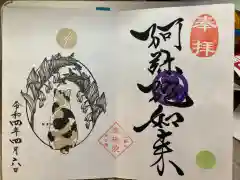 奉拝
阿弥陀如来
令和四年四月六日